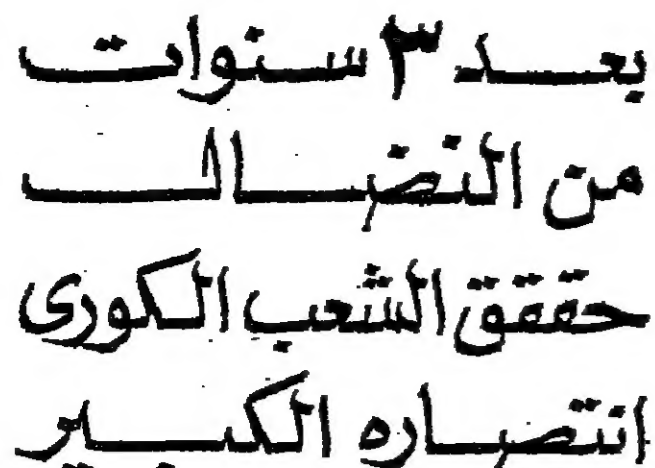 بعد ٣ سنوات
من النضال
حقق الشعب الكورى
انتصاره الكبير